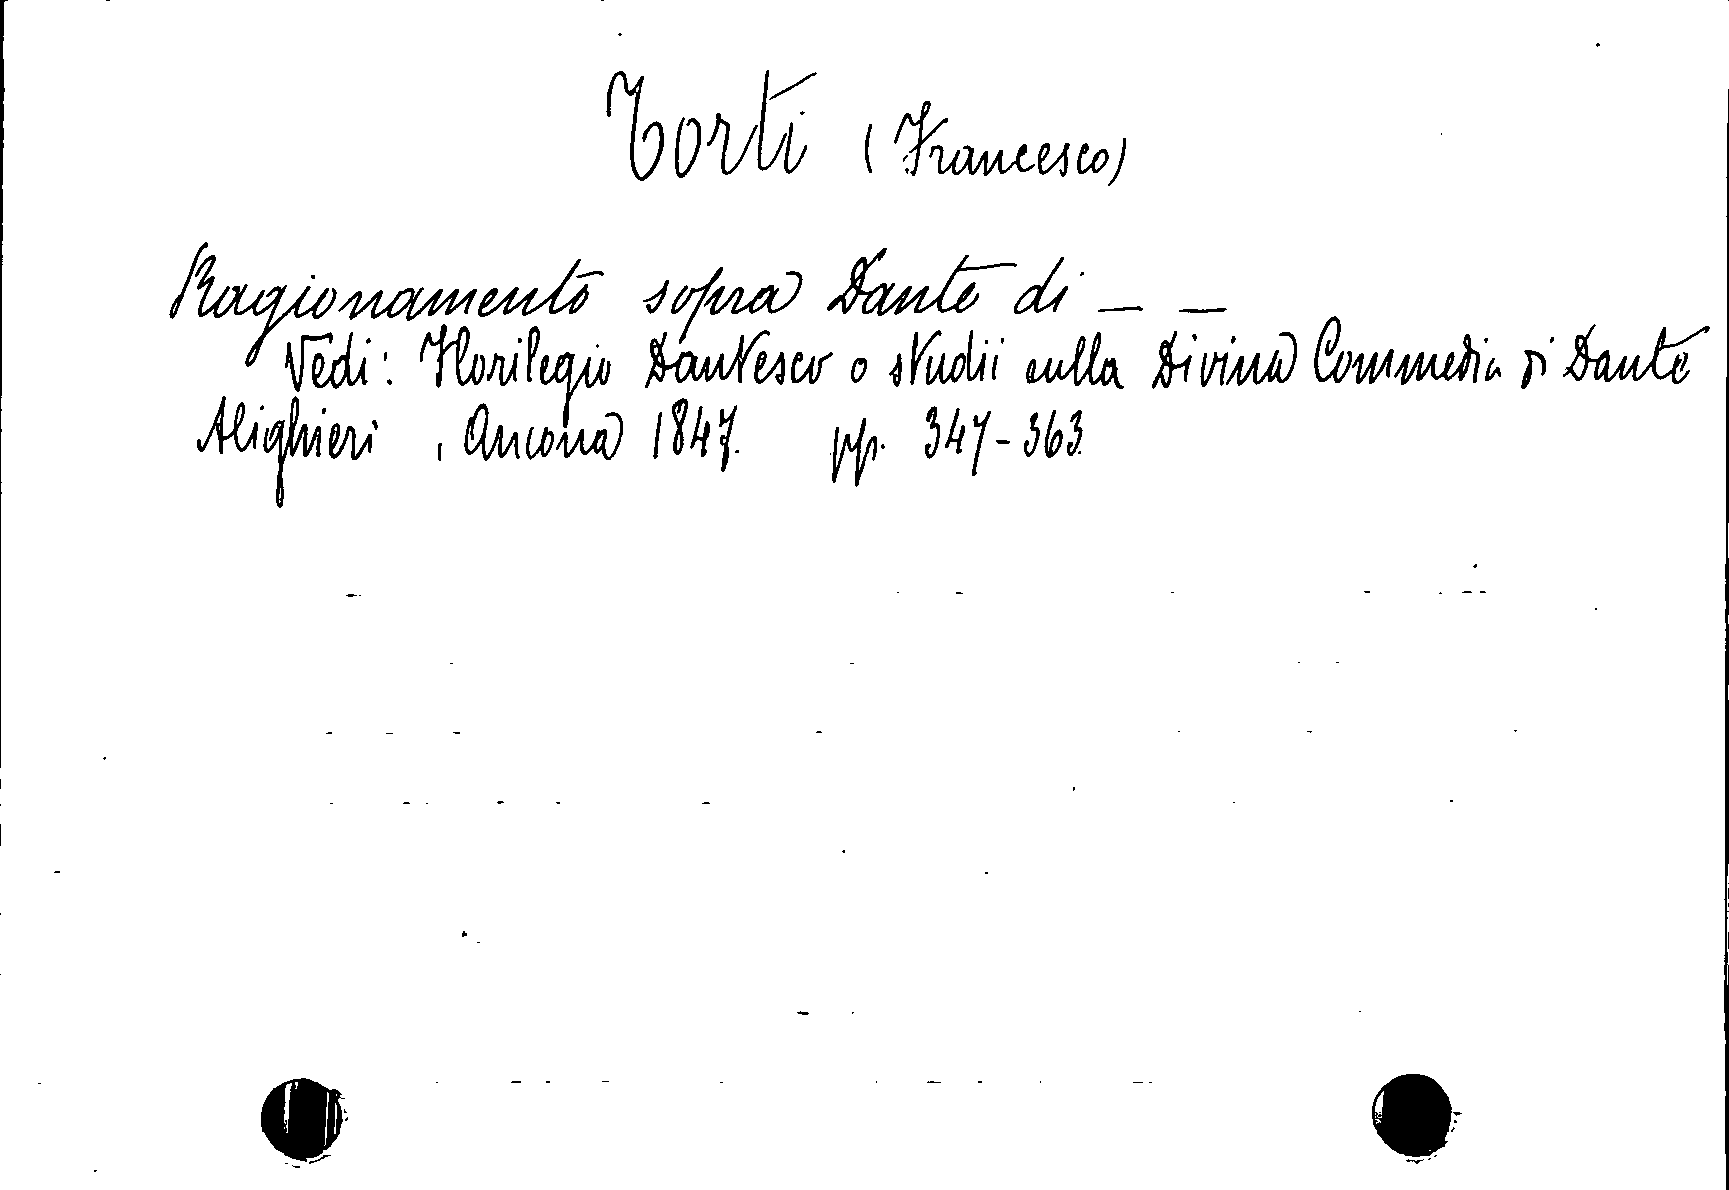 Torti (Francesco)
Ragionamento sopra Dante di — —
Vedi: Florilegio Dantesco o studii sulla Divina Commedia di Dante
Alighieri, Ancona 1847. pp. 347-363.